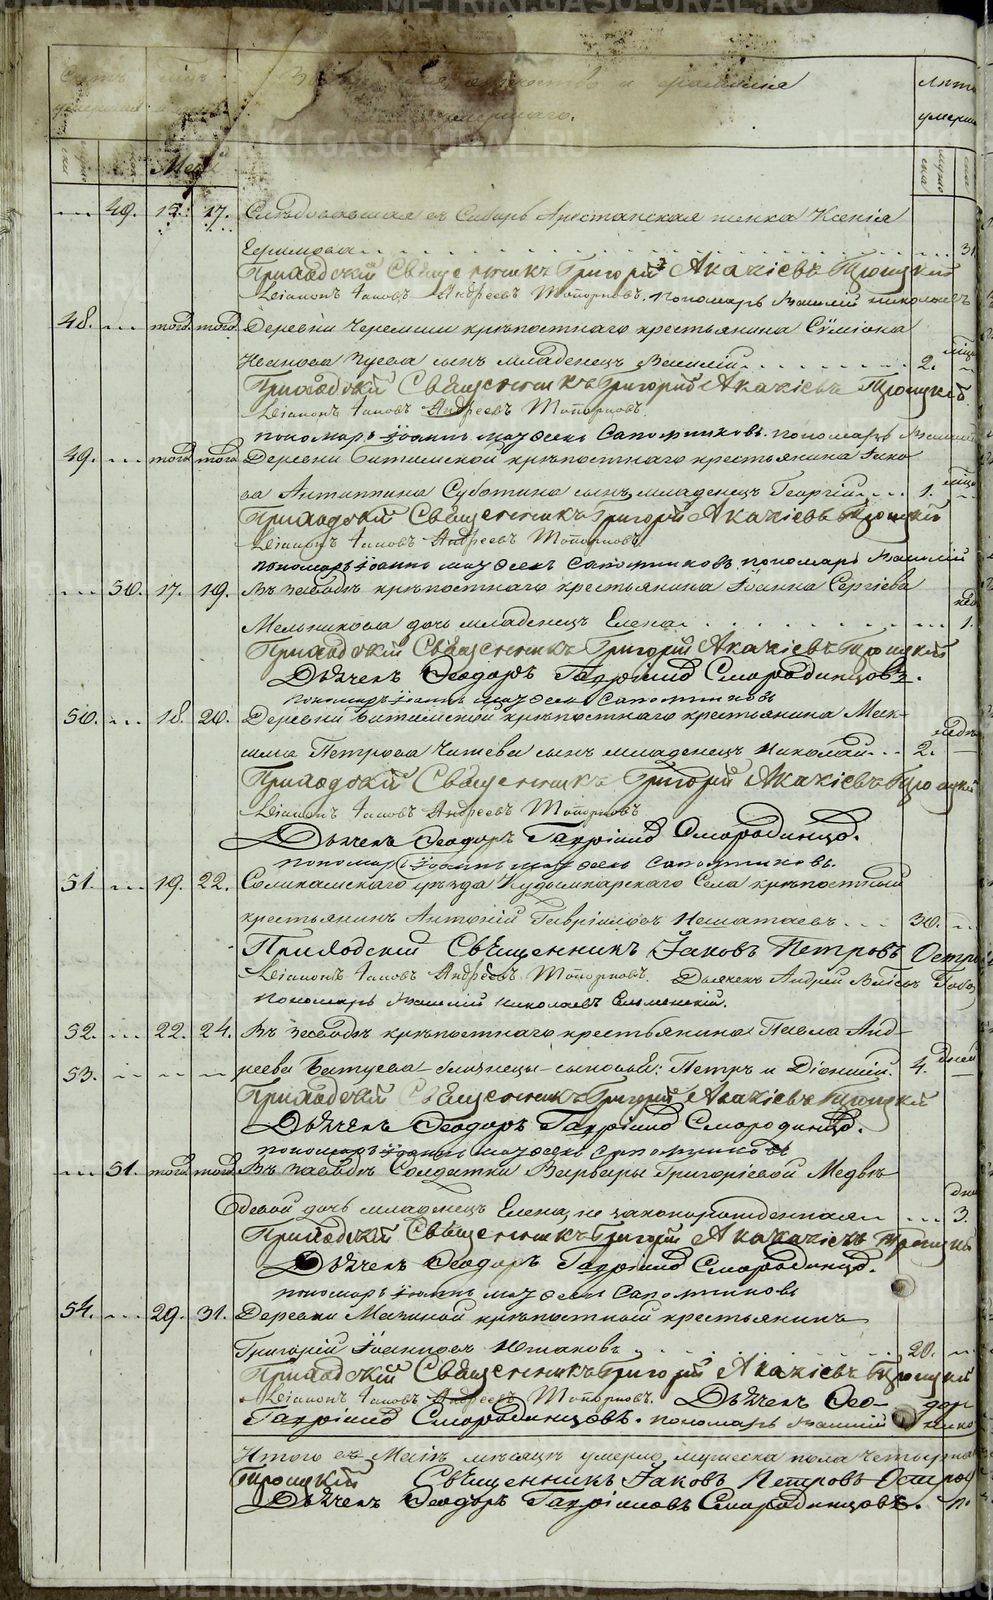 METRIKI.GASO-URAL.RU
Счетъ
умершихъ
имя, отчество и фамилія
умершаго.
Лѣта
умерша
Май
49. 15. 17. Слѣдовавшая въ Сибирь Арестанская женка Ксенія
Ефимова 31
Приходскій Священникъ Григорій Акакіевъ Троицкій
Діаконъ Іаковъ Андреевъ Топорковъ. пономарь Василій Николаевъ
48. того того Деревни Черемши крѣпостнаго крестьянина Сѵмеона
Иванова Гусева сынъ младенецъ Василій 2. мѣся
Приходскій Священникъ Григорій Акакіевъ Троицкій.
Діаконъ Іаковъ Андреевъ Топорковъ.
пономарь Іоаннъ Сапожниковъ. пономарь Василій
49. того того Деревни Битимской крѣпостнаго крестьянина Іако
ва Антипина Суботина сынъ младенецъ Георгій 1. мѣся
Приходскій Священникъ Григорій Акакіевъ Троицкій
Діаконъ Іаковъ Андреевъ Топорковъ
пономарь Іоаннъ Сапожниковъ. пономарь Василій
50. 17. 19. Въ заводѣ крѣпостнаго крестьянина Іоанна Сергіева
Мельникова дочь младенецъ Елена 1. нед
Приходскій Священникъ Григорій Акакіевъ Троицкій
Дьячекъ Ѳеодоръ Гавріиловъ Смородинцовъ.
пономарь Іоаннъ Сапожниковъ
50. 18. 20. Деревни Битимской крѣпостнаго крестьянина Мак-
сима Петрова сынъ младенецъ Николай 2. недѣ
Приходскій Священникъ Григорій Акакіевъ Троицкій
Діаконъ Іаковъ Андреевъ Топорковъ
Дьячекъ Ѳеодоръ Гавріиловъ Смородинцовъ.
пономарь Іоаннъ Сапожниковъ.
51. 19. 22. Соликамскаго уѣзда Кудымкарскаго Села крѣпостный
крестьянинъ Антоній Гавріиловъ 30.
Приходскій Священникъ Іаковъ Петровъ Остро
Діаконъ Іаковъ Андреевъ Топорковъ. Дьячекъ Андрей
Пономарь Василій Николаевъ
52. 22. 24. Въ заводѣ крѣпостнаго крестьянина Павла Анд-
53. реева близнецы сыновья: Петръ и Діонисій. 4. дней
Приходскій Священникъ Григорій Акакіевъ Троицкій
Дьячекъ Ѳеодоръ Гавріиловъ Смородинцовъ.
пономарь Іоаннъ Сапожниковъ
51. того того Въ заводѣ Солдатки Варвары Григоріевой Медвѣ-
девой дочь младенецъ Елена, не законорожденная 3. дня
Приходскій Священникъ Григорій Акакіевъ Троицкій
Дьячекъ Ѳеодоръ Гавріиловъ Смородинцовъ.
пономарь Іоаннъ Сапожниковъ
54. 29. 31. Деревни Макиной крѣпостный крестьянинъ
Григорій Іоанновъ 20.
Приходскій Священникъ Григорій Акакіевъ Троицкій
Діаконъ Іаковъ Андреевъ Топорковъ. Дьячекъ Ѳео-доръ
Гавріиловъ Смородинцовъ. пономарь Василій Нико
Итого въ Маіѣ мѣсяцѣ умерло мужеска пола четырна
Троицкій Священникъ Іаковъ Петровъ Остро
Дьячекъ Ѳеодоръ Гавріиловъ Смородинцовъ. п.
METRIKI.GASO-URAL.RU